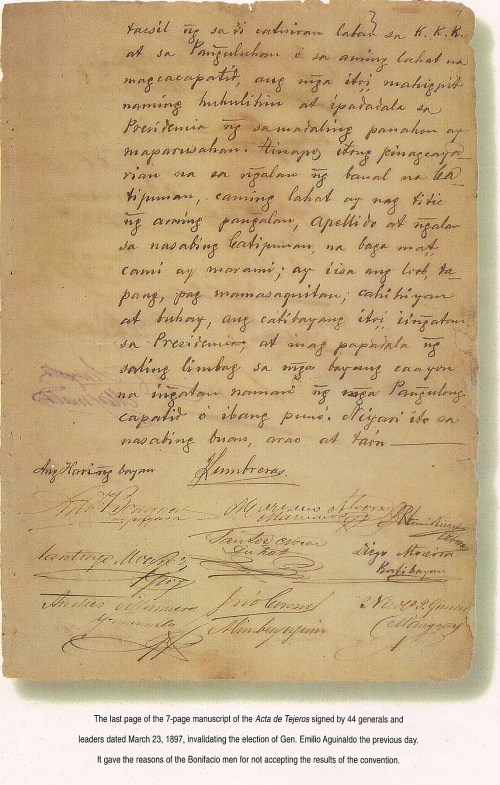 tacsil ñg sa di catuiran laban sa K. K. K.
at sa Pañguluhan ó sa aming lahat na
magcacapatid, ang mga itoi, mahigpit
naming huhulihin at ipadadala sa
Presidencia ñg sa madaling panahon ay
maparusahan. Hinapos itong pinagcaya-
rian na sa ñgalan ñg banal na Ca-
tipunan, caming lahat ay nag titic
ñg aming pangalan, apellido at ñgalan
sa nasabing Catipunan, na baga mat,
cami ay marami; ay iisa ang loob, ta-
pang, pag mamasaquitan; cahihiyan
at buhay, ang catibayang itoi, iiñgatan
sa Presidencia; at mag papadala ñg
saling limbag sa mga bayang caayon
na iñgatan naman ñg mga Pangulong
capatid ó ibang punó. Niyari ito sa
nasabing buan, arao at taon
Ang Haring bayan
Kumbreras.
Mariano Alvarez
Santos Nocon
Santiago
Diego Moxica
Katibayan
Apoy
The last page of the 7-page manuscript of the Acta de Tejeros signed by 44 generals and
leaders dated March 23, 1897, invalidating the election of Gen. Emilio Aguinaldo the previous day.
It gave the reasons of the Bonifacio men for not accepting the results of the convention.